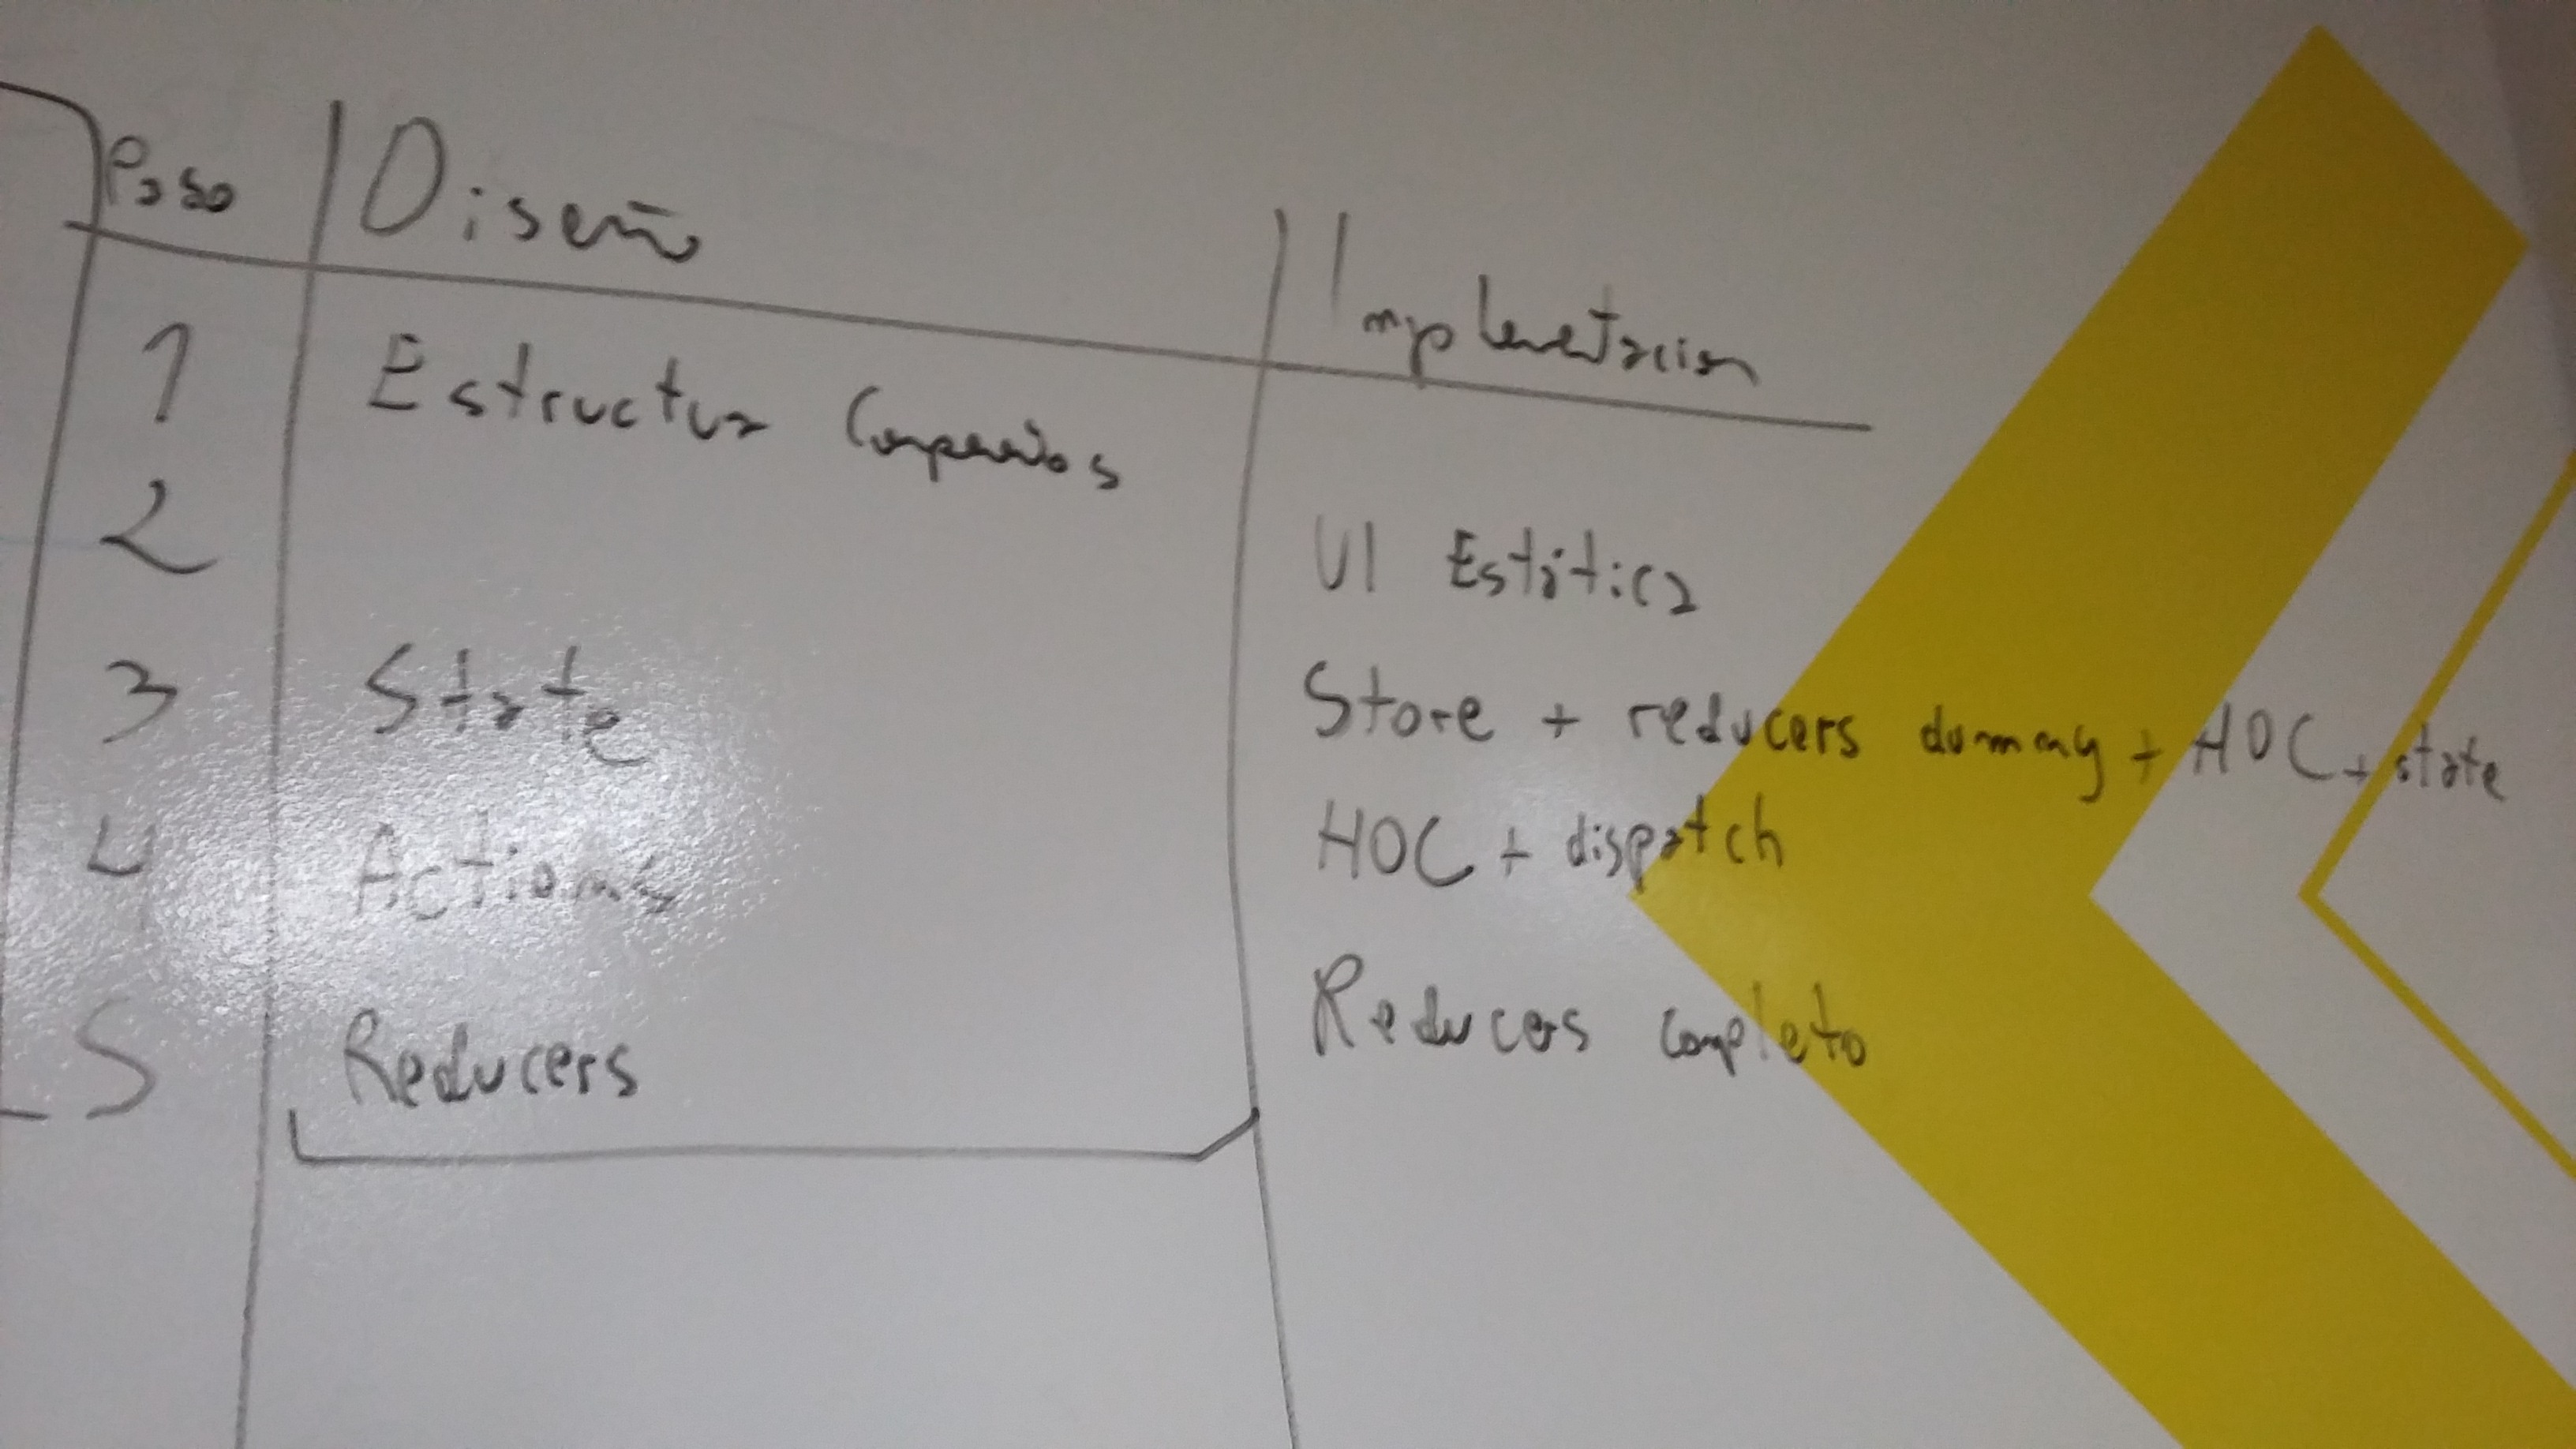 Paso Diseño Implementacion
1 Estructura
2 UI Estática
3 State Store + reducers dummy + HOC + state
4 Actions HOC + dispatch
5 Reducers Reducers completo